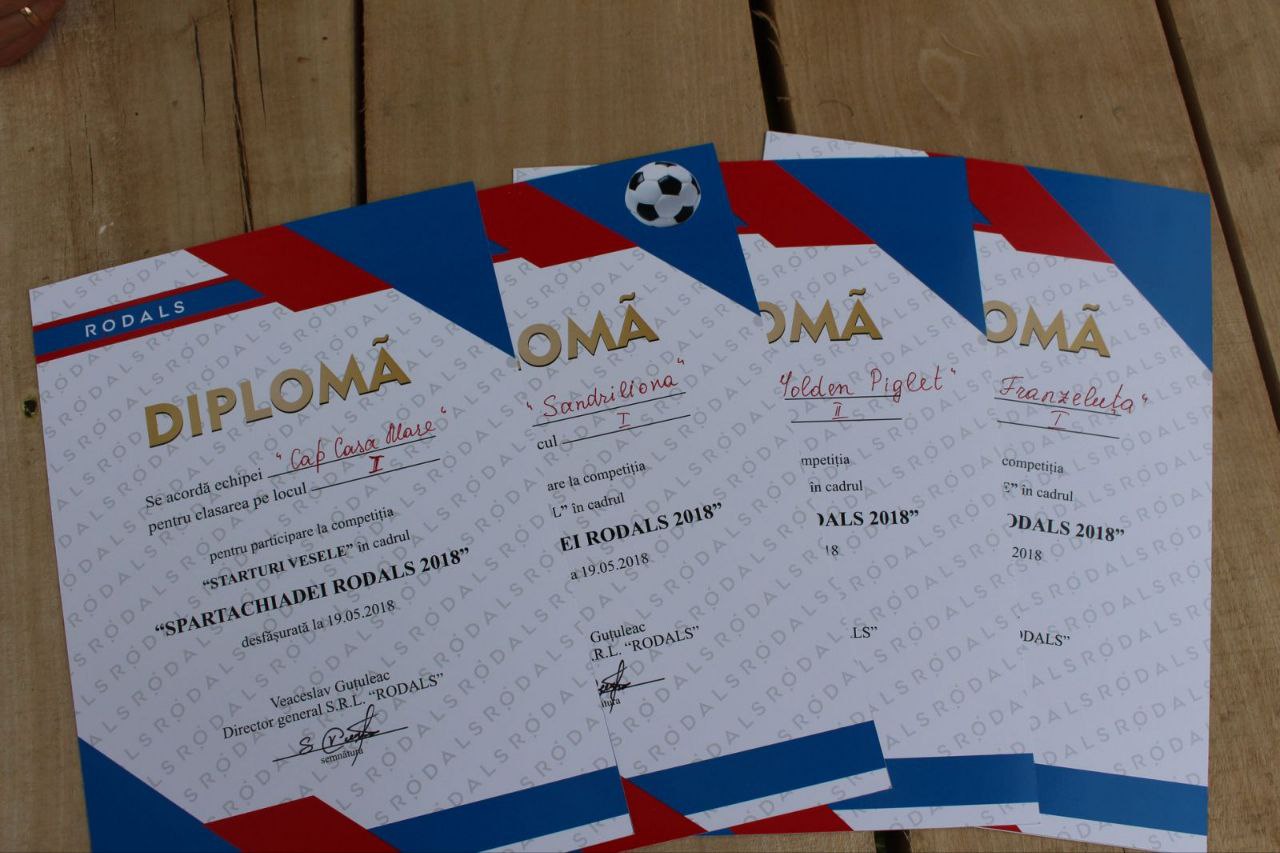 RODALS
DIPLOMĂ
Se acordă echipei "Cap Casa Mare"
pentru clasarea pe locul I
pentru participare la competiția
“STARTURI VESELE” în cadrul
“SPARTACHIADEI RODALS 2018”
desfășurată la 19.05.2018
Veaceslav Guțuleac
Director general S.R.L. “RODALS”
semnătura
OMĂ
"Sandriliona"
cul I
are la competiția
L” în cadrul
EI RODALS 2018”
a 19.05.2018
Guțuleac
.R.L. “RODALS”
tura
OMĂ
Golden Piglet"
II
mpetiția
în cadrul
DALS 2018”
18
LS”
OMĂ
Franzeluța"
I
competiția
E” în cadrul
ODALS 2018”
2018
DALS”